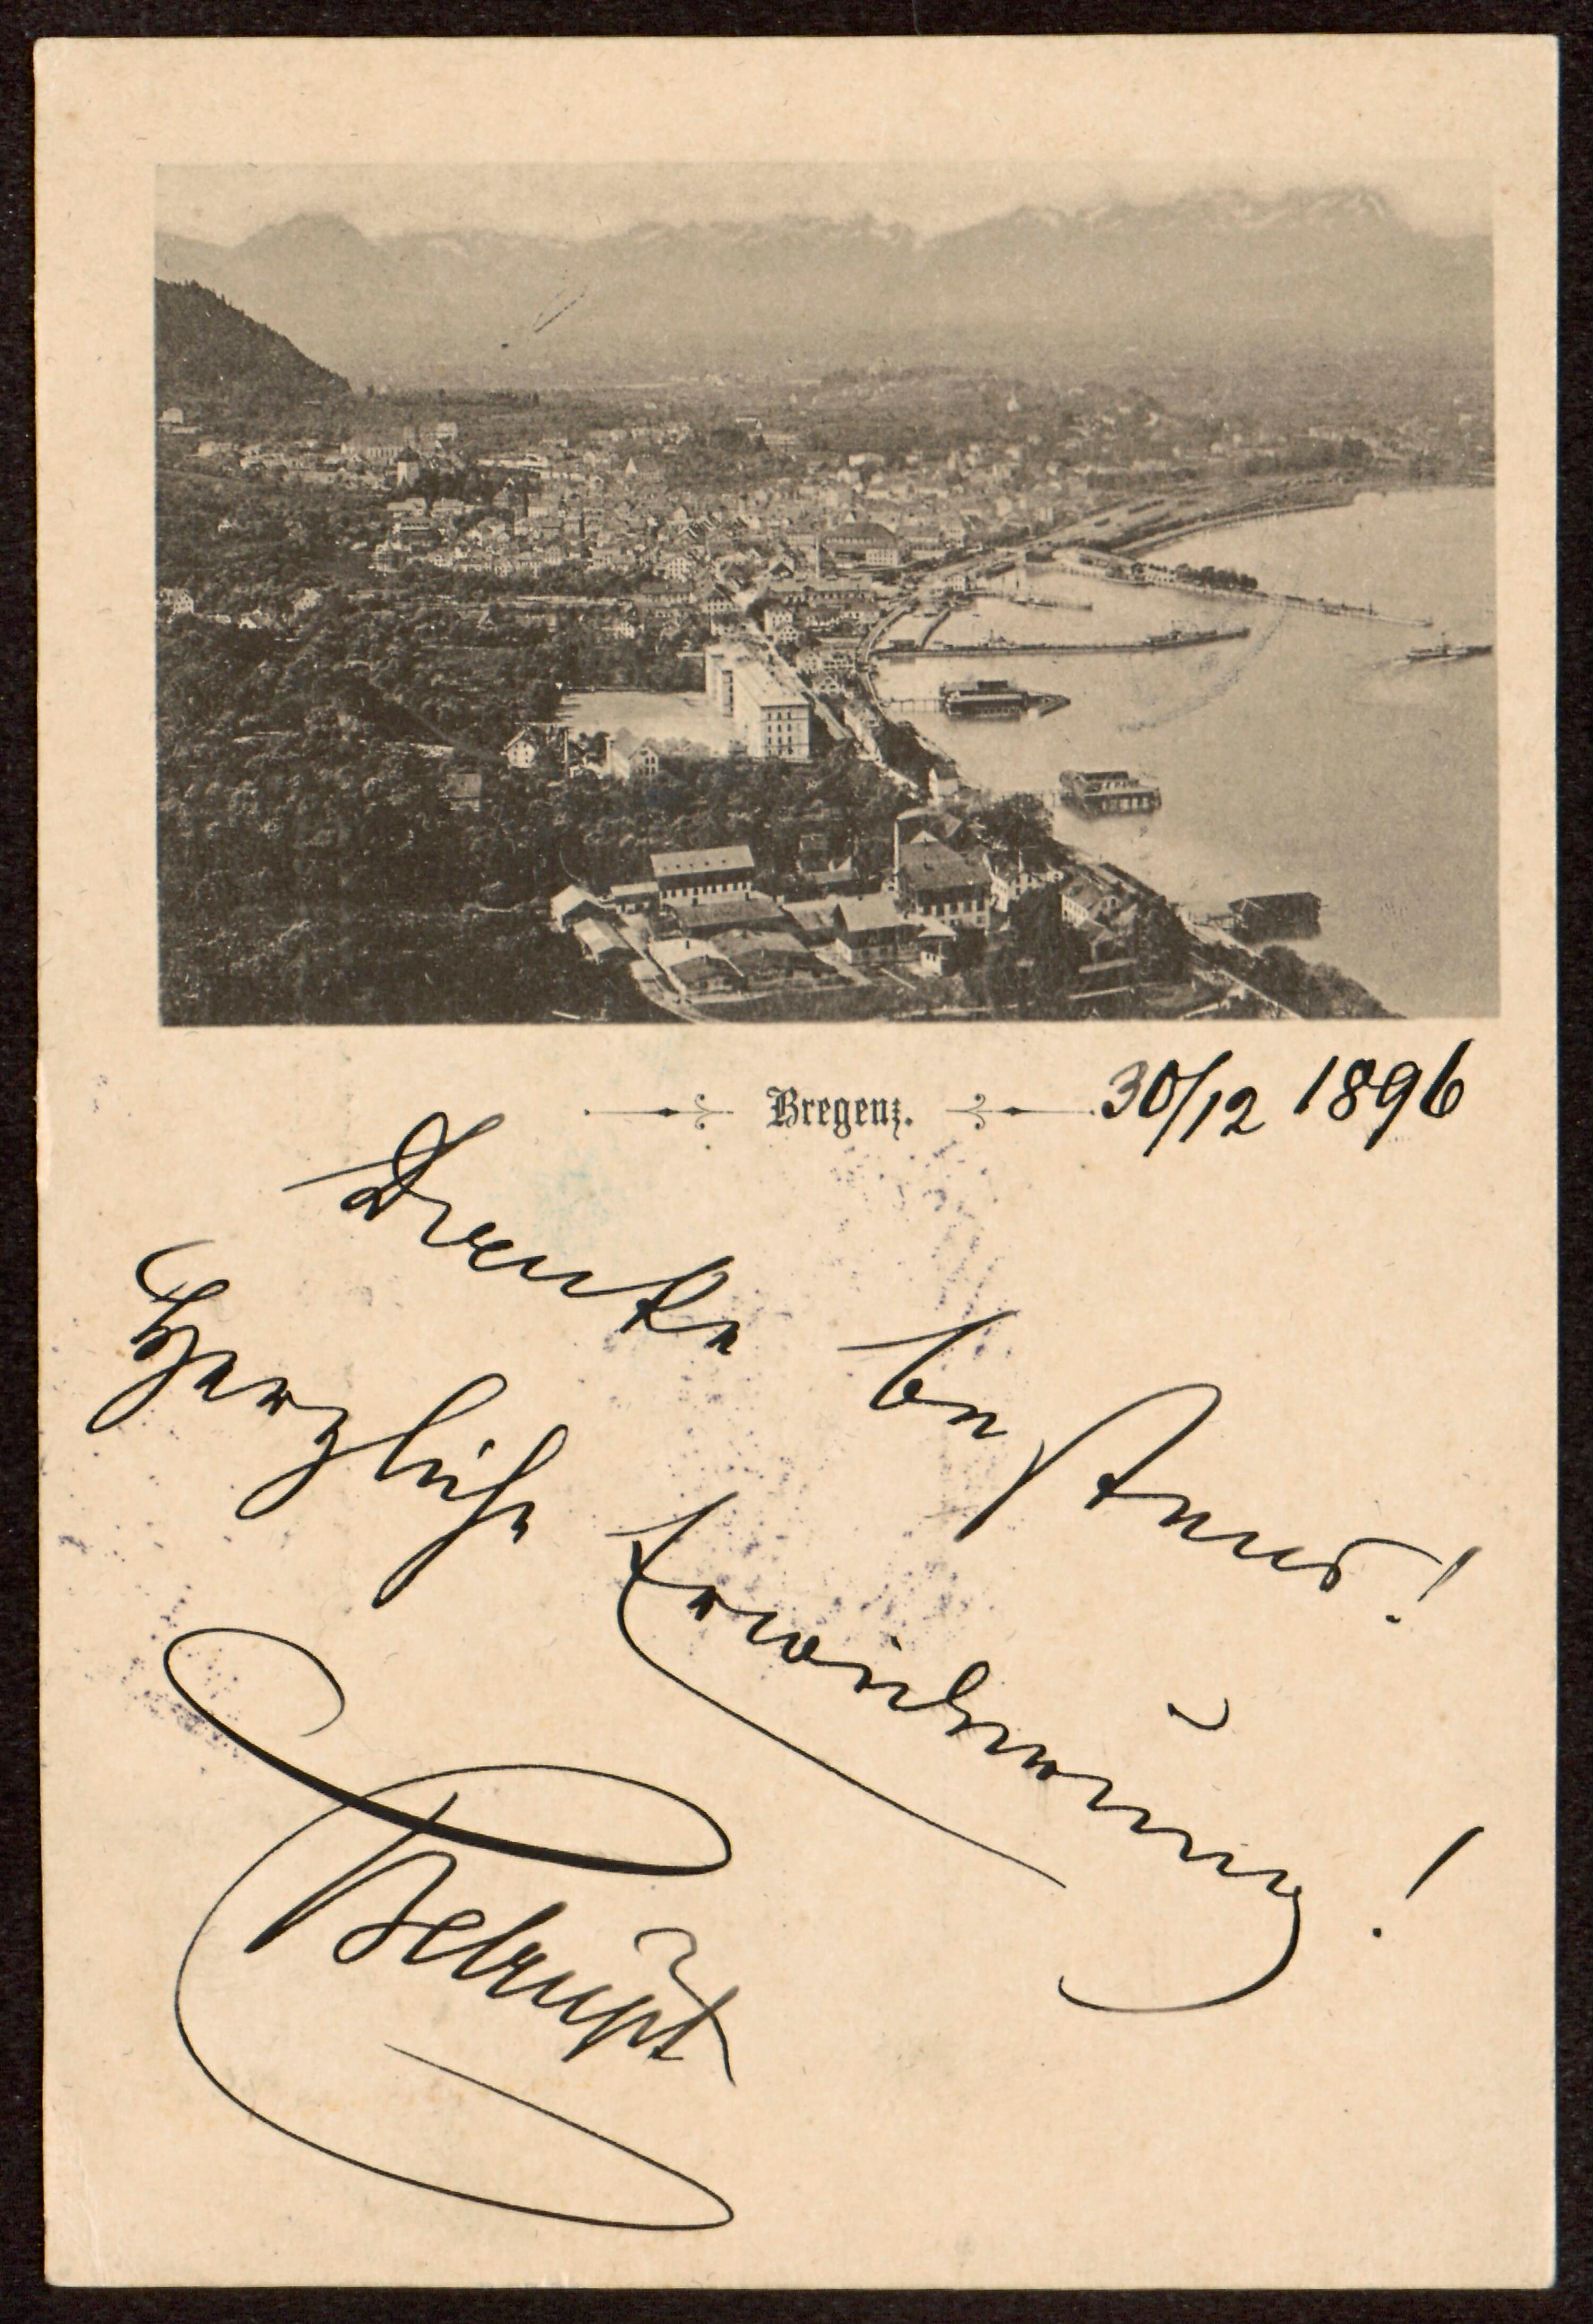 Bregenz.
30/12 1896
Danke bestens!
Herzliche Erwiderung!